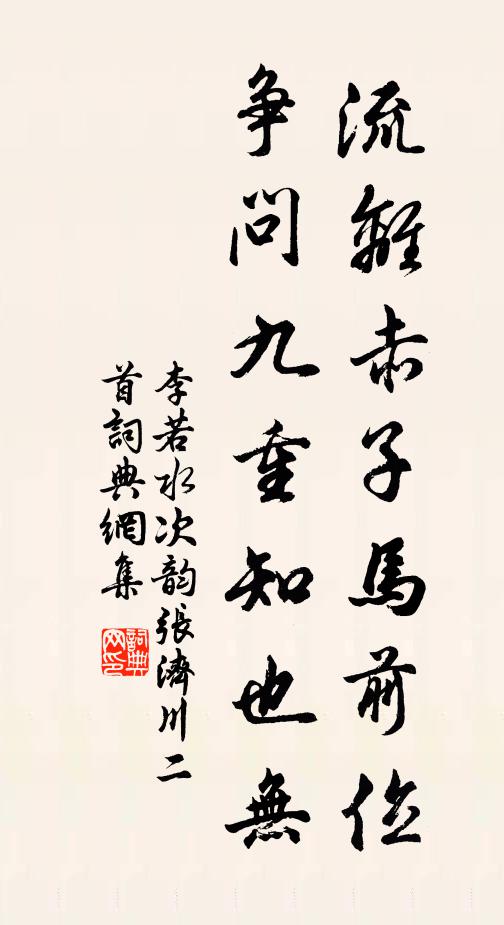 流離赤子馬前泣
爭問九重知也無
李若水次韵張濟川二
首詞典網集
詞典
网印